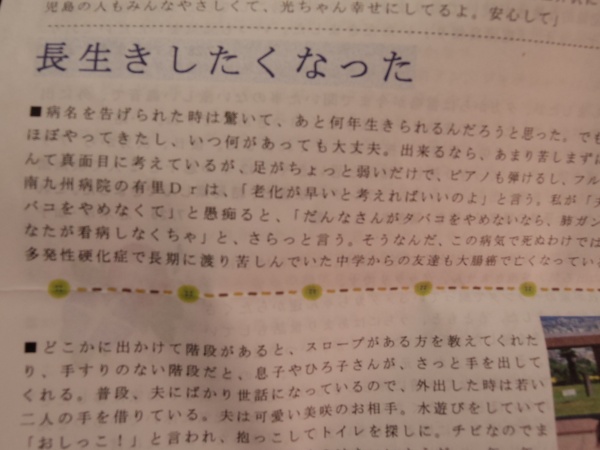 児島の人もみんなやさしくて、光ちゃん幸せにしてるよ。安心して」
長生きしたくなった
■病名を告げられた時は驚いて、あと何年生きられるんだろうと思った。でも
ほぼやってきたし、いつ何があっても大丈夫。出来るなら、あまり苦しまずに
んて真面目に考えているが、足がちょっと弱いだけで、ピアノも弾けるし、フル
南九州病院の有里Ｄｒは、「老化が早いと考えればいいのよ」と言う。私が「
バコをやめなくて」と愚痴ると、「だんなさんがタバコをやめないなら、肺ガン
なたが看病しなくちゃ」と、さらっと言う。そうなんだ、この病気で死ぬわけでは
多発性硬化症で長期に渡り苦しんでいた中学からの友達も大腸癌で亡くなってい
■どこかに出かけて階段があると、スロープがある方を教えてくれた
り、手すりのない階段だと、息子やひろ子さんが、さっと手を出して
くれる。普段、夫にばかり世話になっているので、外出した時は若い
二人の手を借りている。夫は可愛い美咲のお相手。水遊びをしていて
「おしっこ！」と言われ、抱っこしてトイレを探しに。チビなのでま